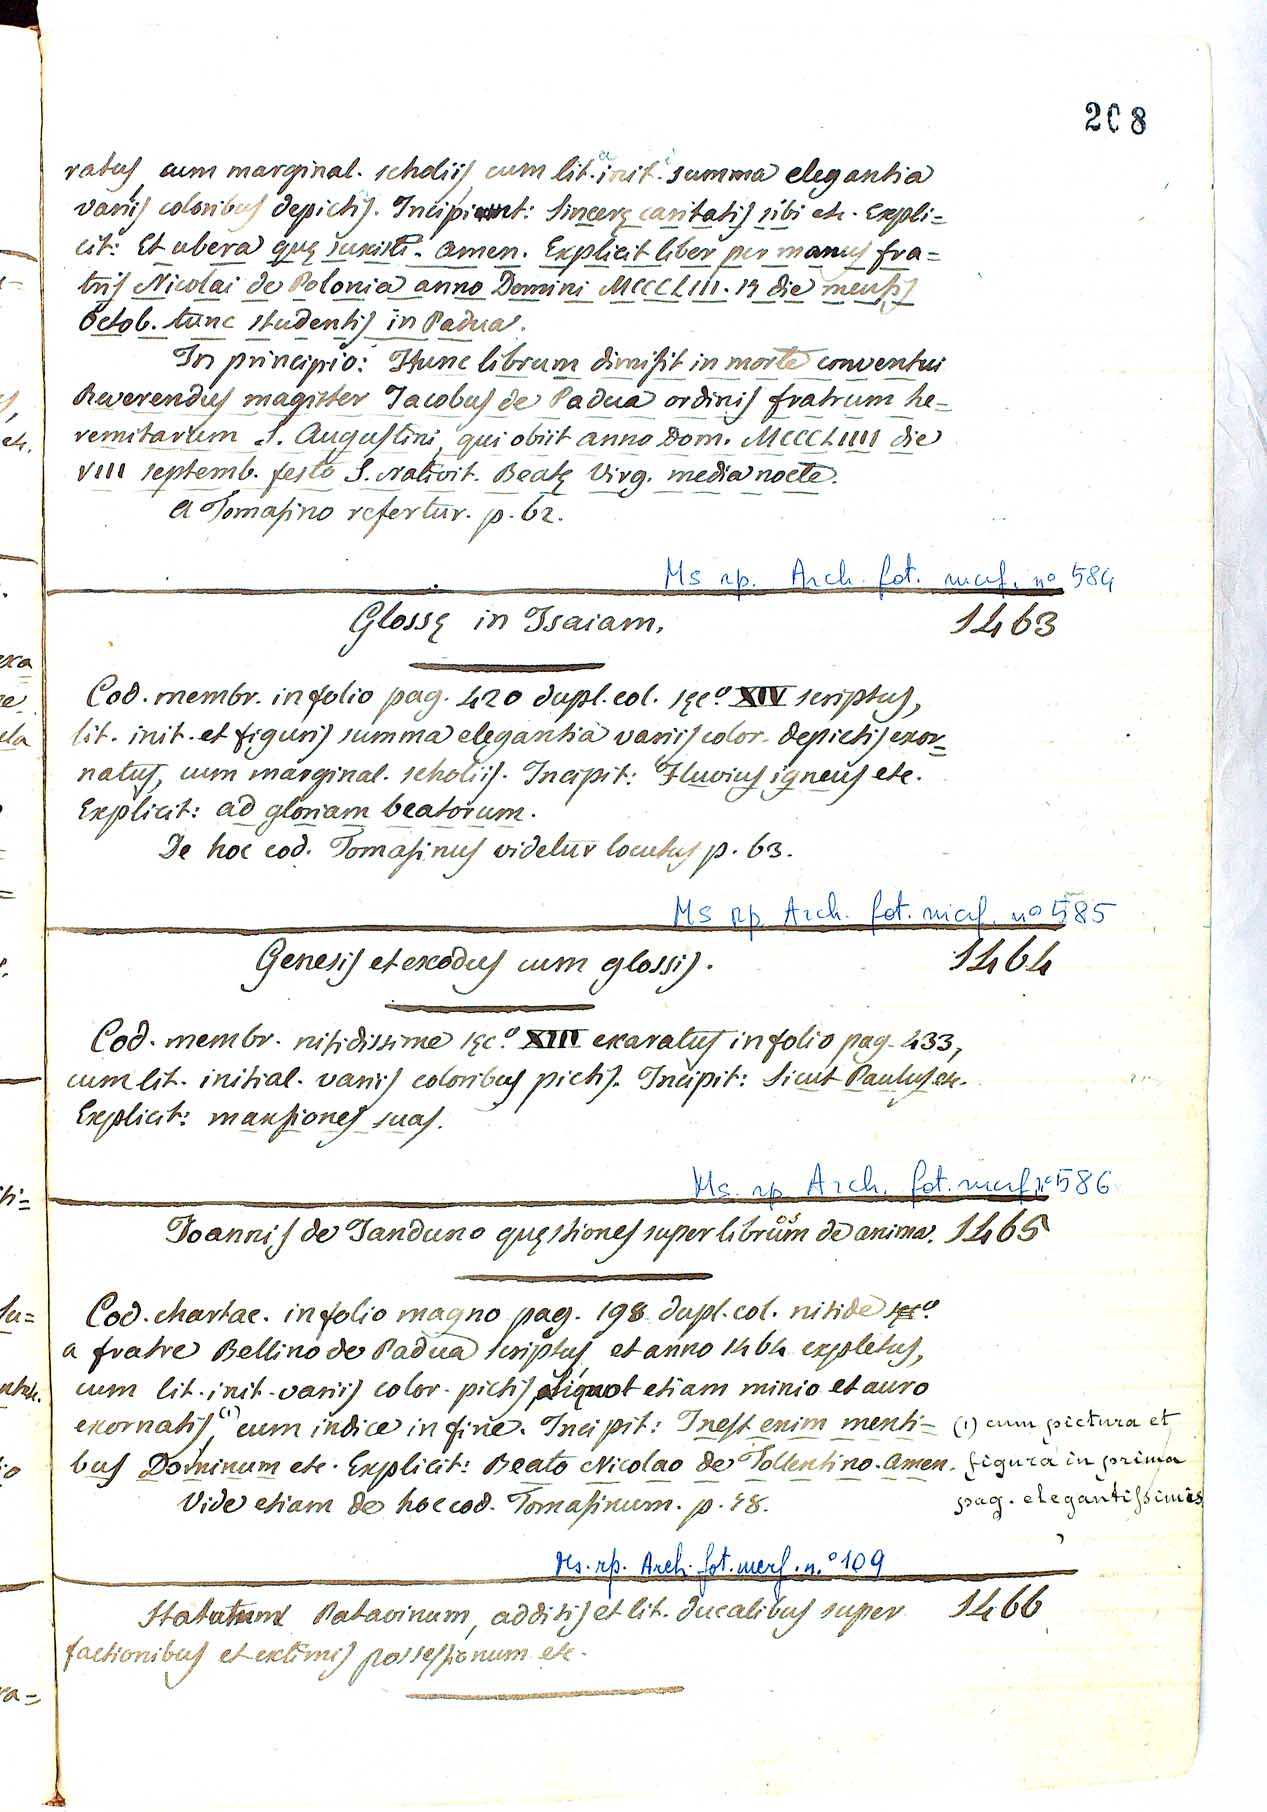 208
ratus, cum marginal. scholiis, cum lit. init. summa elegantia
variis coloribus depictis. Incipit: Sincerę caritatis sibi etc. Expli=
cit: Et ubera quę suxisti. Amen. Explicit liber per manus fra=
tris Nicolai de Polonia anno Domini MCCCLIII. 14 die mensis
Octob. tunc studentis in Padua.
In principio: Hunc librum dimisit in morte conventui
Reverendus magister Jacobus de Padua ordinis fratrum he=
remitarum S. Augustini, qui obiit anno Dom. MCCCLIIII die
VIII septemb. festo S. Nativit. Beatę Virg. media nocte.
A Tomasino refertur. p. 62.
Ms rp. Arch. fot. marf. nº 584
Glossę in Isaiam. 1463
Cod. membr. in folio pag. 420 dupl. col. sęcº XIV scriptus,
lit. init. et figuris summa elegantia variis color. depictis exor=
natus, cum marginal. scholiis. Incipit: Fluvius igneus etc.
Explicit: ad gloriam beatorum.
De hoc cod. Tomasinus videtur locutus p. 63.
Ms rp. Arch. fot. marf. nº 585
Genesis et exodus cum glossis. 1464
Cod. membr. nitidissime sęc.º XIII exaratus in folio pag. 433,
cum lit. initial. variis coloribus pictis. Incipit: Sicut Paulus etc.
Explicit: mansiones suas.
Ms. rp Arch. fot. marf nº 586
Joannis de Janduno quęstiones super librum os de anima. 1465
Cod. chartac. in folio magno pag. 198 dupl. col. nitide sęcº
a fratre Bellino de Padua scriptus, et anno 1464 expletus,
cum lit. init. variis color. pictis, aliquot etiam minio et auro
exornatis, (1) cum indice in fine. Incipit: Inest enim menti=
bus Dominum etc. Explicit: Beato Nicolao de Tollentino. Amen.
Vide etiam de hoc cod. Tomasinum. p. 48.
(1) cum pictura et
figura in prima
pag. elegantissimis
Ms. rp. Arch. fot. marf. n.º 109
Statutum Patavinum, additis et lit. ducalibus super 1466
factionibus et extimis possessionum etc.